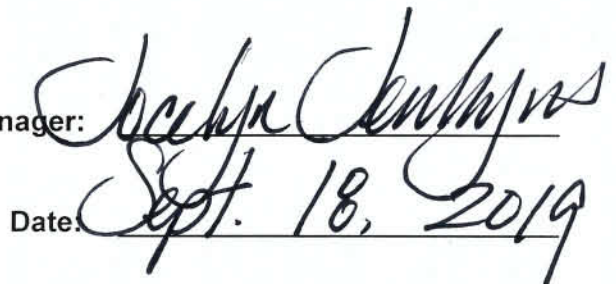 nager: Jocelyn Jenkyns
Date: Sept. 18, 2019